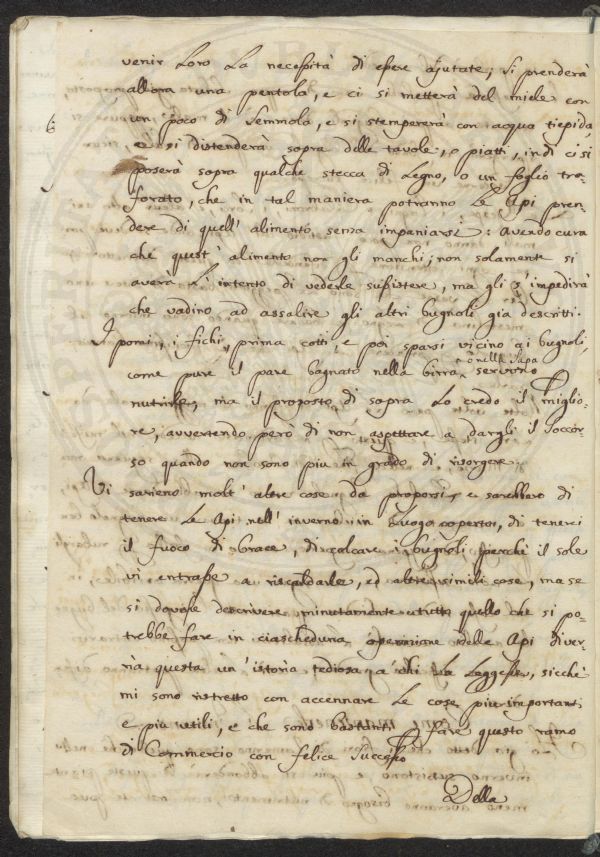 venir Loro La necessità di essere ajutate; si prenderà
allora una pentola, e ci si metterà del miele con
un poco di Semmola, e si stempererà con acqua tiepida,
e si distenderà sopra delle tavole, o piatti, indi ci si
poserà sopra qualche stecca di Legno, o un foglio tra-
forato, che in tal maniera potranno Le Api pren-
dere di quell' alimento senza impaniarsi: avendo cura
che quest' alimento non gli manchi; non solamente si
averà L'intento di vederle sussistere, ma gli s'impedirà
che vadino ad assalire gli altri bugnoli già descritti.
I pomi, i fichi, prima cotti, e poi sparsi vicino ai bugnoli,
come pure il pane bagnato nella birra, o nella Sapa servono
nutrirle, ma il proposto di sopra Lo credo il miglio-
re, avvertendo però di non aspettare a dargli il soccor-
so quando non sono piu in grado di risorgere.
Vi sarieno molt' altre cose da proporsi, e sarebbero di
tenere Le Api nell' inverno in Luogo coperto, di tenerci
il fuoco di brace, di colcare i bugnoli, perche il sole
vi entrasse a riscaldarle, ed altre simili cose, ma se
si dovesse descrivere minutamente tutto quello che si po-
trebbe fare in ciascheduna operazione delle Api diver-
rìa questa un' istoria tediosa a chi La Leggesse, sicchè
mi sono ristretto con accennare Le cose piu importanti
e piu utili, e che sono bastanti fare questo ramo
di Commercio con felice successo
Della